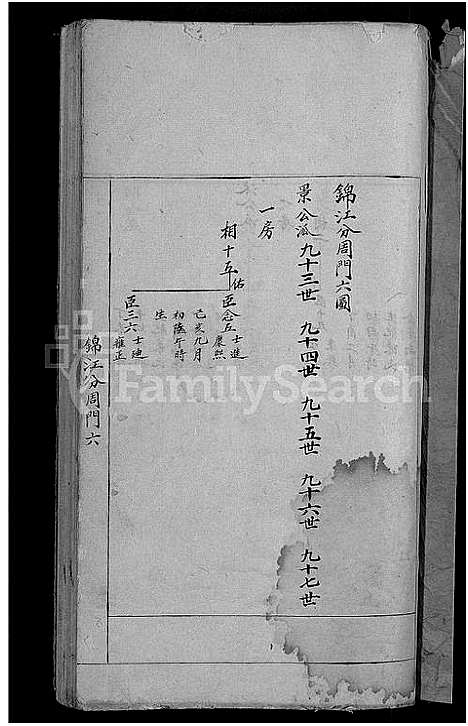 錦江分周門六圖
景公派九十三世 九十四世 九十五世 九十六世 九十七世
一房
相十五佑
臣念五士進
康熙
己亥九月
初陸午時
生
臣三六士迪
雍正
錦江分周門六
FamilySearch